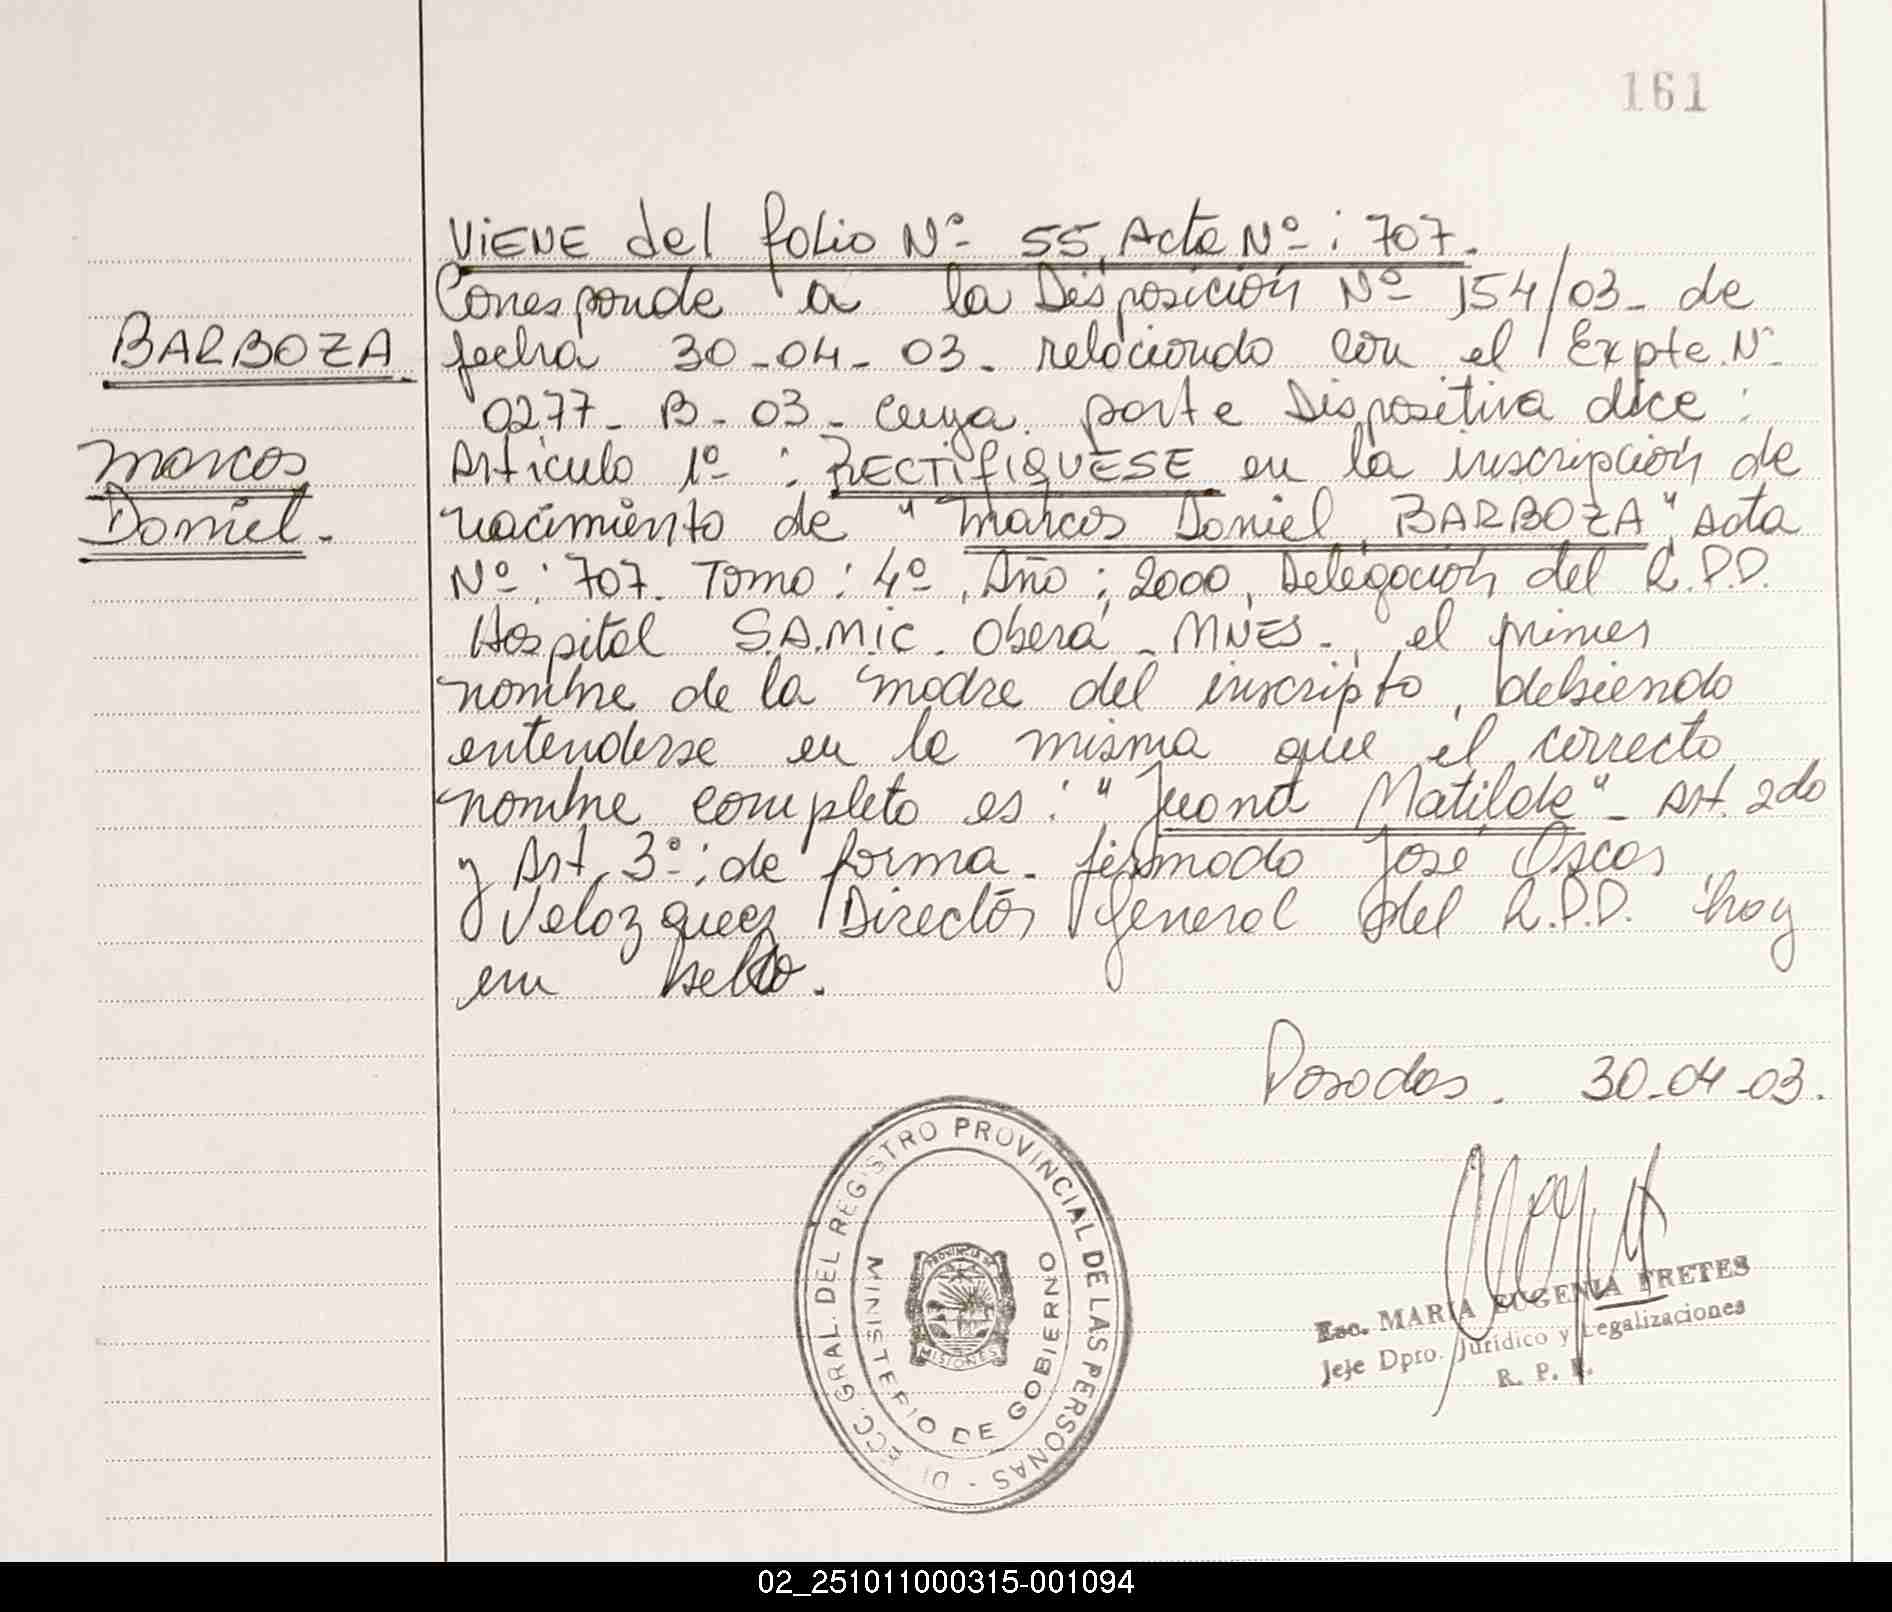 161
VIENE del folio Nº 55, Acta Nº: 707.
Corresponde a la Disposición Nº 154/03- de
BARBOZA
fecha 30-04-03. relacionado con el Expte. Nº
0277- B- 03- cuya parte Dispositiva dice:
Marcos
Articulo 1º: RECTIFIQUESE en la inscripción de
Daniel.
nacimiento de "Marcos Daniel, BARBOZA" Acta
Nº: 707. Tomo: 4º, Año: 2000, Delegación del R.P.P.
Hospital S.A.M.I.C. Oberá - MNES-, el primer
nombre de la madre del inscripto, debiendo
entenderse en la misma que el correcto
nombre completo es: "Juana Matilde"- Art. 2do
y Art. 3º: de forma. firmado José Oscar
Velozquez Director General del R.P.P. hoy
en
Posadas. 30-04-03.
DIRECC. GRAL. DEL REGISTRO PROVINCIAL DE LAS PERSONAS -
MINISTERIO DE GOBIERNO
PROVINCIA DE
MISIONES
Esc. MARIA EUGENIA FRETES
Jefe Dpto. Jurídico y Legalizaciones
R. P. P.
02_251011000315-001094